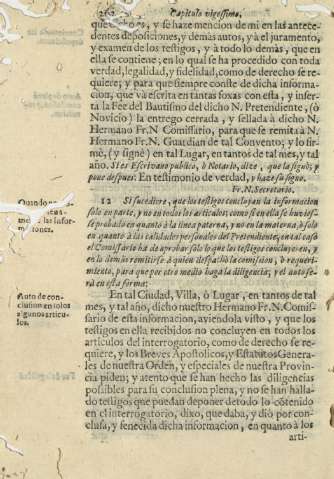 262 Capitulo vigessimo,
que doy fee, y se haze mencion de mi en las antece-
dentes deposiciones, y demàs autos, y à el juramento,
y examen de los testigos, y à todo lo demàs, que en
ella se contiene; en lo qual se ha procedido con toda
verdad, legalidad, y fidelidad, como de derecho se re-
quiere; y para que siempre conste de dicha informa-
cion, que và escrita en tantas foxas con esta, y inser-
ta la Fee del Bautismo del dicho N. Pretendiente, (ò
Novicio) la entrego cerrada, y sellada à dicho N.
Hermano Fr. N Comissario, para que se remita à N.
Hermano Fr. N. Guardian de tal Convento; y lo fir-
mè, (y signè) en tal Lugar, en tantos de tal mes, y tal
año. Si es Escrivano publico, ò Notario, dize, que la signè; y
pone despues: En testimonio de verdad, y haze su signo.
Fr. N. Secretario.
12 Si sucediere, que los testigos concluyan la informacion
solo en parte, y no en todos los articulos; como si en ella se huvies-
se probado en quanto à la linea paterna, y no en la materna, ò solo
en quanto à las calidades personales del Pretendiente, en tal caso
el Comissario ha de aprobar solo lo que los testigos concluyen, y
en lo demàs remitirse à quien despachò la comission, ò requeri-
miento, para que por otro medio haga la diligencia; y el auto se-
rà en esta forma:
En tal Ciudad, Villa, ò Lugar, en tantos de tal
mes, y tal año, dicho nuestro Hermano Fr. N. Comis-
sario de esta informacion, aviendola visto, y que los
testigos en ella recibidos no concluyen en todos los
articulos del interrogatorio, como de derecho se re-
quiere, y los Breves Apostolicos, y Estatutos Genera-
les de nuestra Orden, y especiales de nuestra Provin-
cia piden; y atento que se han hecho las diligencias
possibles para su conclusion plena, y no se han halla-
do testigos que puedan deponer de todo lo contenido
en el interrogatorio, dixo, que daba, y diò por con-
clusa, y fenecida dicha informacion, en quanto à los
arti-
Quando
las infor-
maciones.
Auto de con-
clusion en solos
algunos articu-
los.